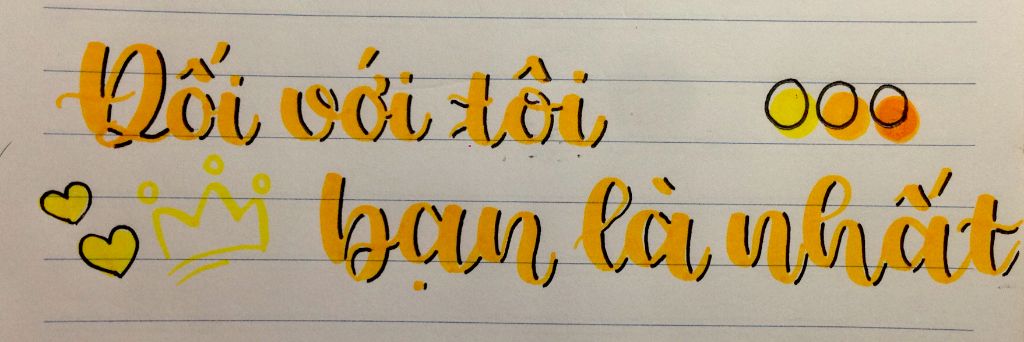 Đối với tôi
bạn là nhất